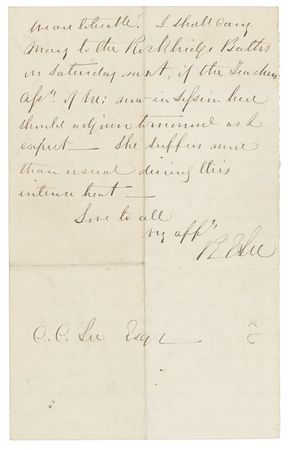 I shall carry
Mary to the Rockbridge Baths
on Saturday next, if the Teachers
Assn of Va: now in Session here
should adjourn tomorrow as I
expect — She suffers more
than usual during this
intense heat —
Love to all
Yrs affy
R E Lee
C. C. Lee Esqr